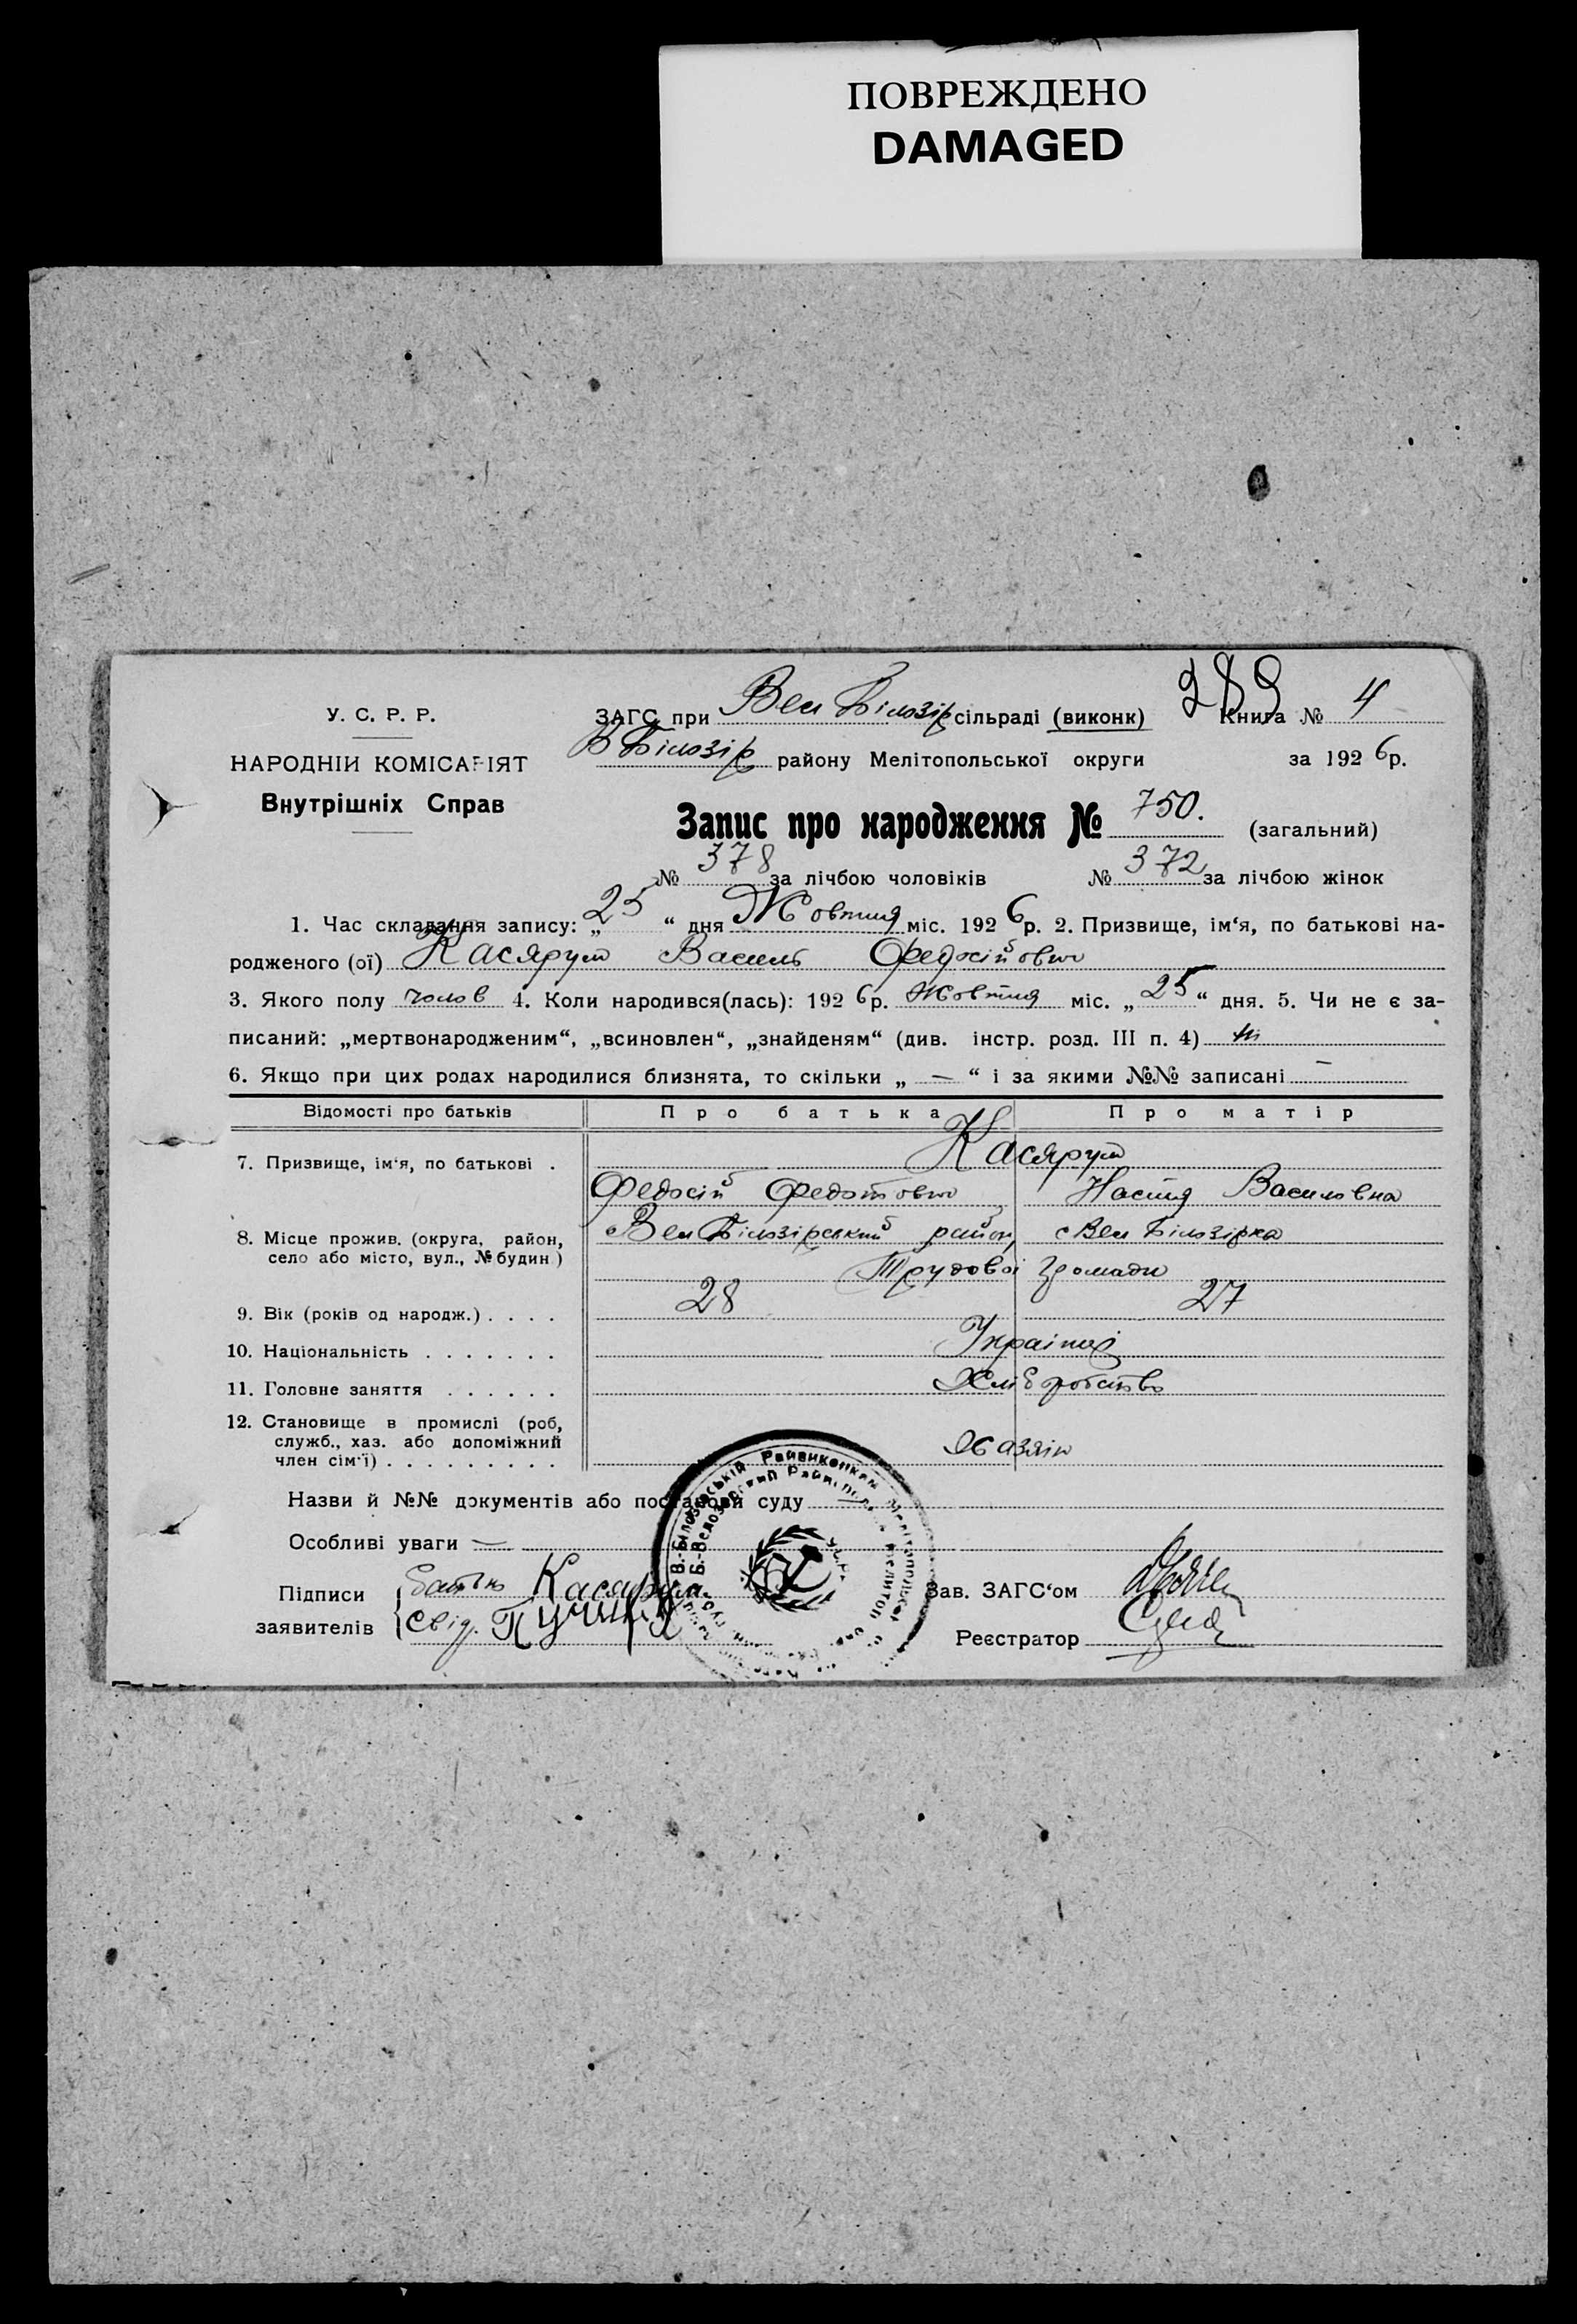 ПОВРЕЖДЕНО
DAMAGED
289
У. С. Р. Р.
ЗАГС при Вел Білозір сільраді (виконк) Книга № 4
НАРОДНІЙ КОМІСАРІЯТ
В Білозір району Мелітопольської округи за 1926 р.
Внутрішніх Справ
Запис про народження № 750. (загальний)
№ 378 за лічбою чоловіків № 372 за лічбою жінок
1. Час складання запису: „25“ дня Жовтня міс. 1926 р. 2. Призвище, ім‘я, по батькові на-
родженого (ої) Касярум Василь Федосійович
3. Якого полу чолов 4. Коли народився(лась): 1926 р. Жовтня міс. „25“ дня. 5. Чи не є за-
писаний: „мертвонародженим“, „всиновлен“, „знайденям“ (див. інстр. розд. III п. 4) ні
6. Якщо при цих родах народилися близнята, то скільки „ — “ і за якими №№ записані —
Відомості про батьків Про батька Про матір
7. Призвище, ім‘я, по батькові . Касярум
Федосій Федотович Настя Василовна
8. Місце прожив. (округа, район, село або місто, вул., № будин) Вел Білозірський район, с Вел Білозірка
Трудової Громади
9. Вік (років од народж.) . . . . 28 27
10. Національність . . . . . . . Українці
11. Головне заняття . . . . . . Хліборобство
12. Становище в промислі (роб,
служб., хаз. або допоміжний
член сім‘ї) . . . . . . . . . Хазяін
Назви й №№ документів або постанови суду —
Особливі уваги —
Підписи батько Касярум Зав. ЗАГС‘ом
заявителів свід. Реєстратор